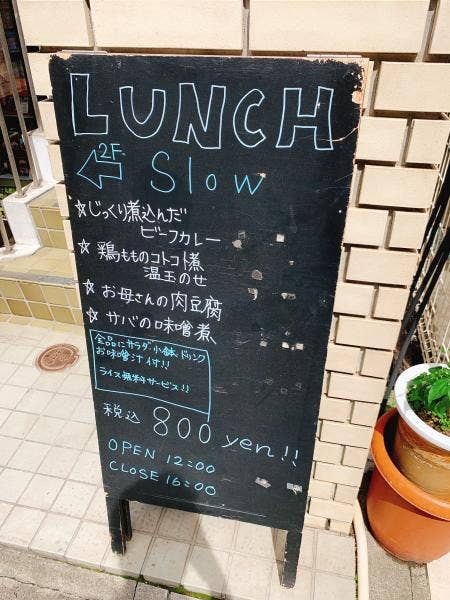 LUNCH
2F.
Slow
☆じっくり煮込んだ
ビーフカレー
☆鶏もものコトコト煮
温玉のせ
☆お母さんの肉豆腐
☆サバの味噌煮
全品にサラダ小鉢ドリンク
お味噌汁付!!
ライス無料サービス!!
税込 800 yen!!
OPEN 12:00
CLOSE 16:00